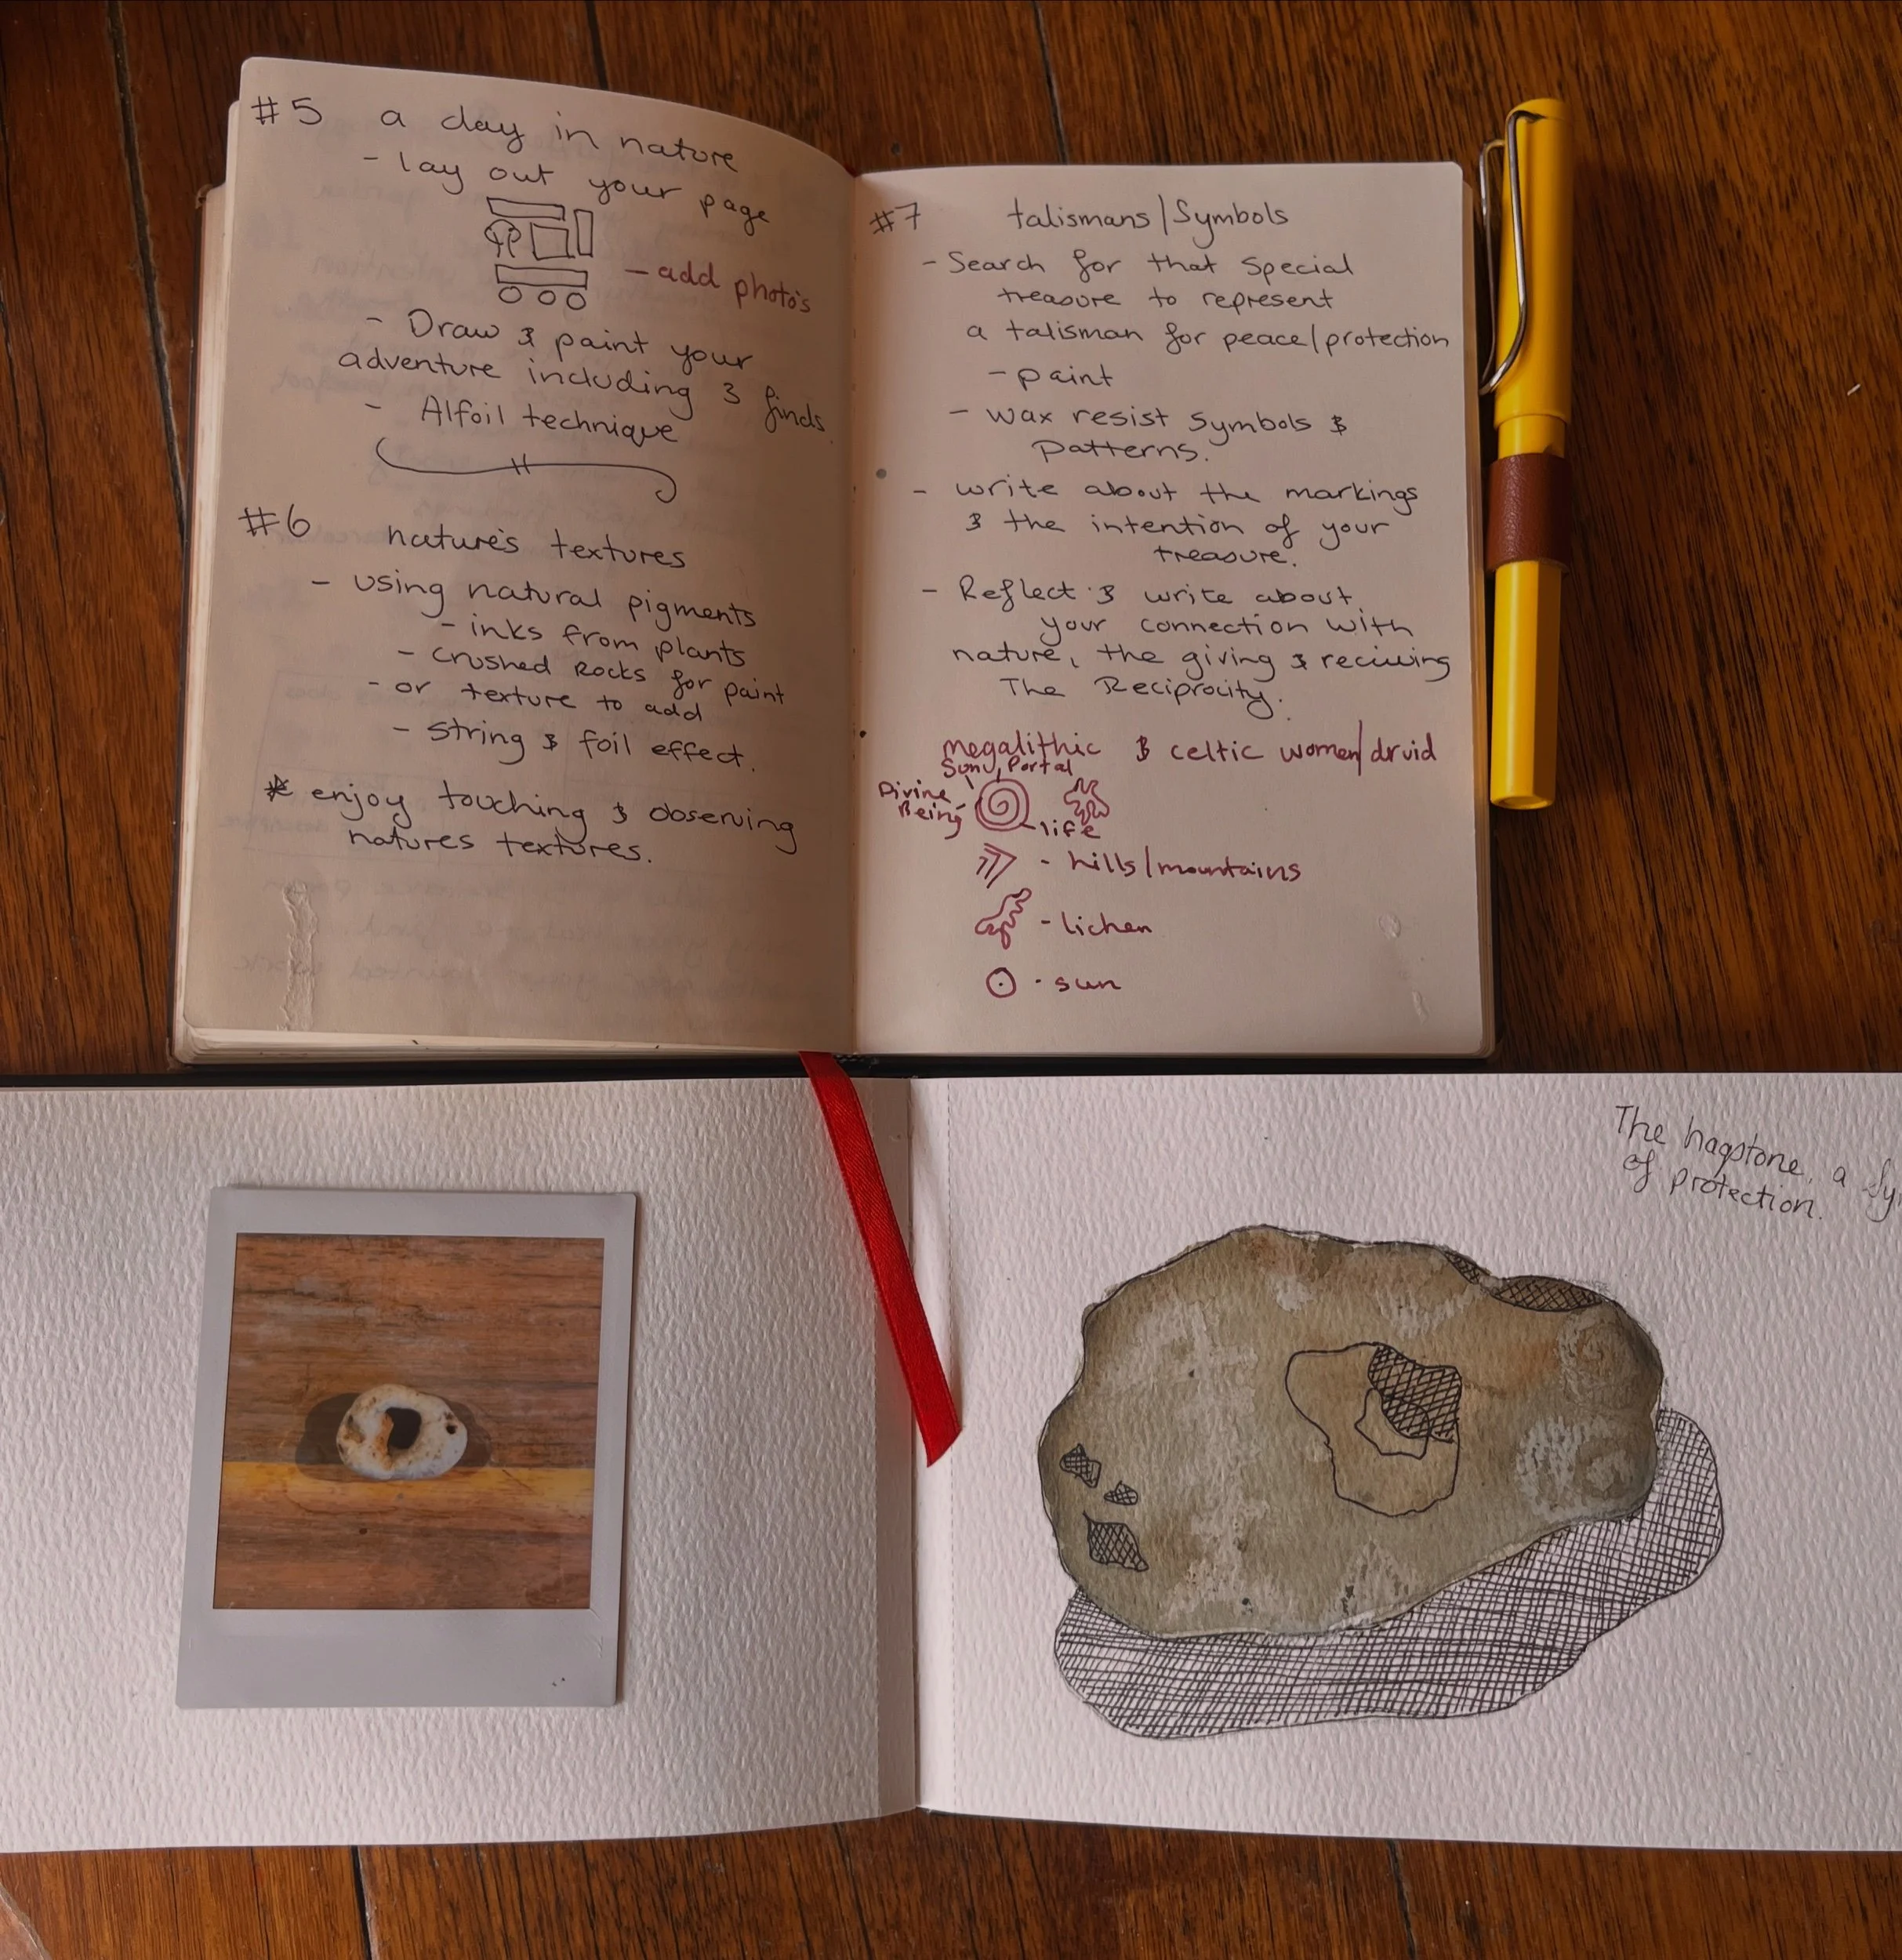 #5 a day in nature
- lay out your page
- add photo's
- Draw & paint your
adventure including 3 finds.
- Alfoil technique
#6 nature's textures
- using natural pigments
- inks from plants
- crushed Rocks for paint
- or texture to add
- string & foil effect.
* enjoy touching & observing
natures textures.
#7 talismans/Symbols
- Search for that special
treasure to represent
a talisman for peace/protection
- paint
- wax resist symbols &
patterns.
- write about the markings
& the intention of your
treasure.
- Reflect & write about
your connection with
nature, the giving & reciving
The Reciprocity.
megalithic & celtic women/druid
Sun, Portal
Divine
Being
life
- hills/mountains
- lichen
- sun
The hagstone, a Sy
of protection.